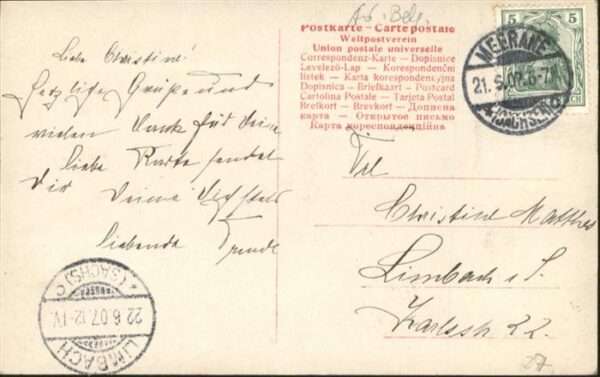 Liebe Christine!
Herzliche Grüße und
vielen Dank für Deine
liebe Karte sendet
Dir Deine Dich stets
liebende
Ad. Belg.
Postkarte - Carte postale
Weltpostverein
Union postale universelle
Correspondenz-Karte - Dopisnice
Levelező-Lap - Korespondenční
lístek - Karta korespondencyjna
Dopisnica - Briefkaart - Postcard
Cartolina Postale - Tarjeta Postal
Brefkort - Brevkort - Дописна
карта - Открытое письмо
Карта кореспонденційна
5 5
MEERANE
21.5.07.6-7
(SACHSEN)
Frl.
Christine Matthes
Limbach i. S.
Karlsstr. 22.
27
(SACHS) C
22.6.07.12-1V.
LIMBACH